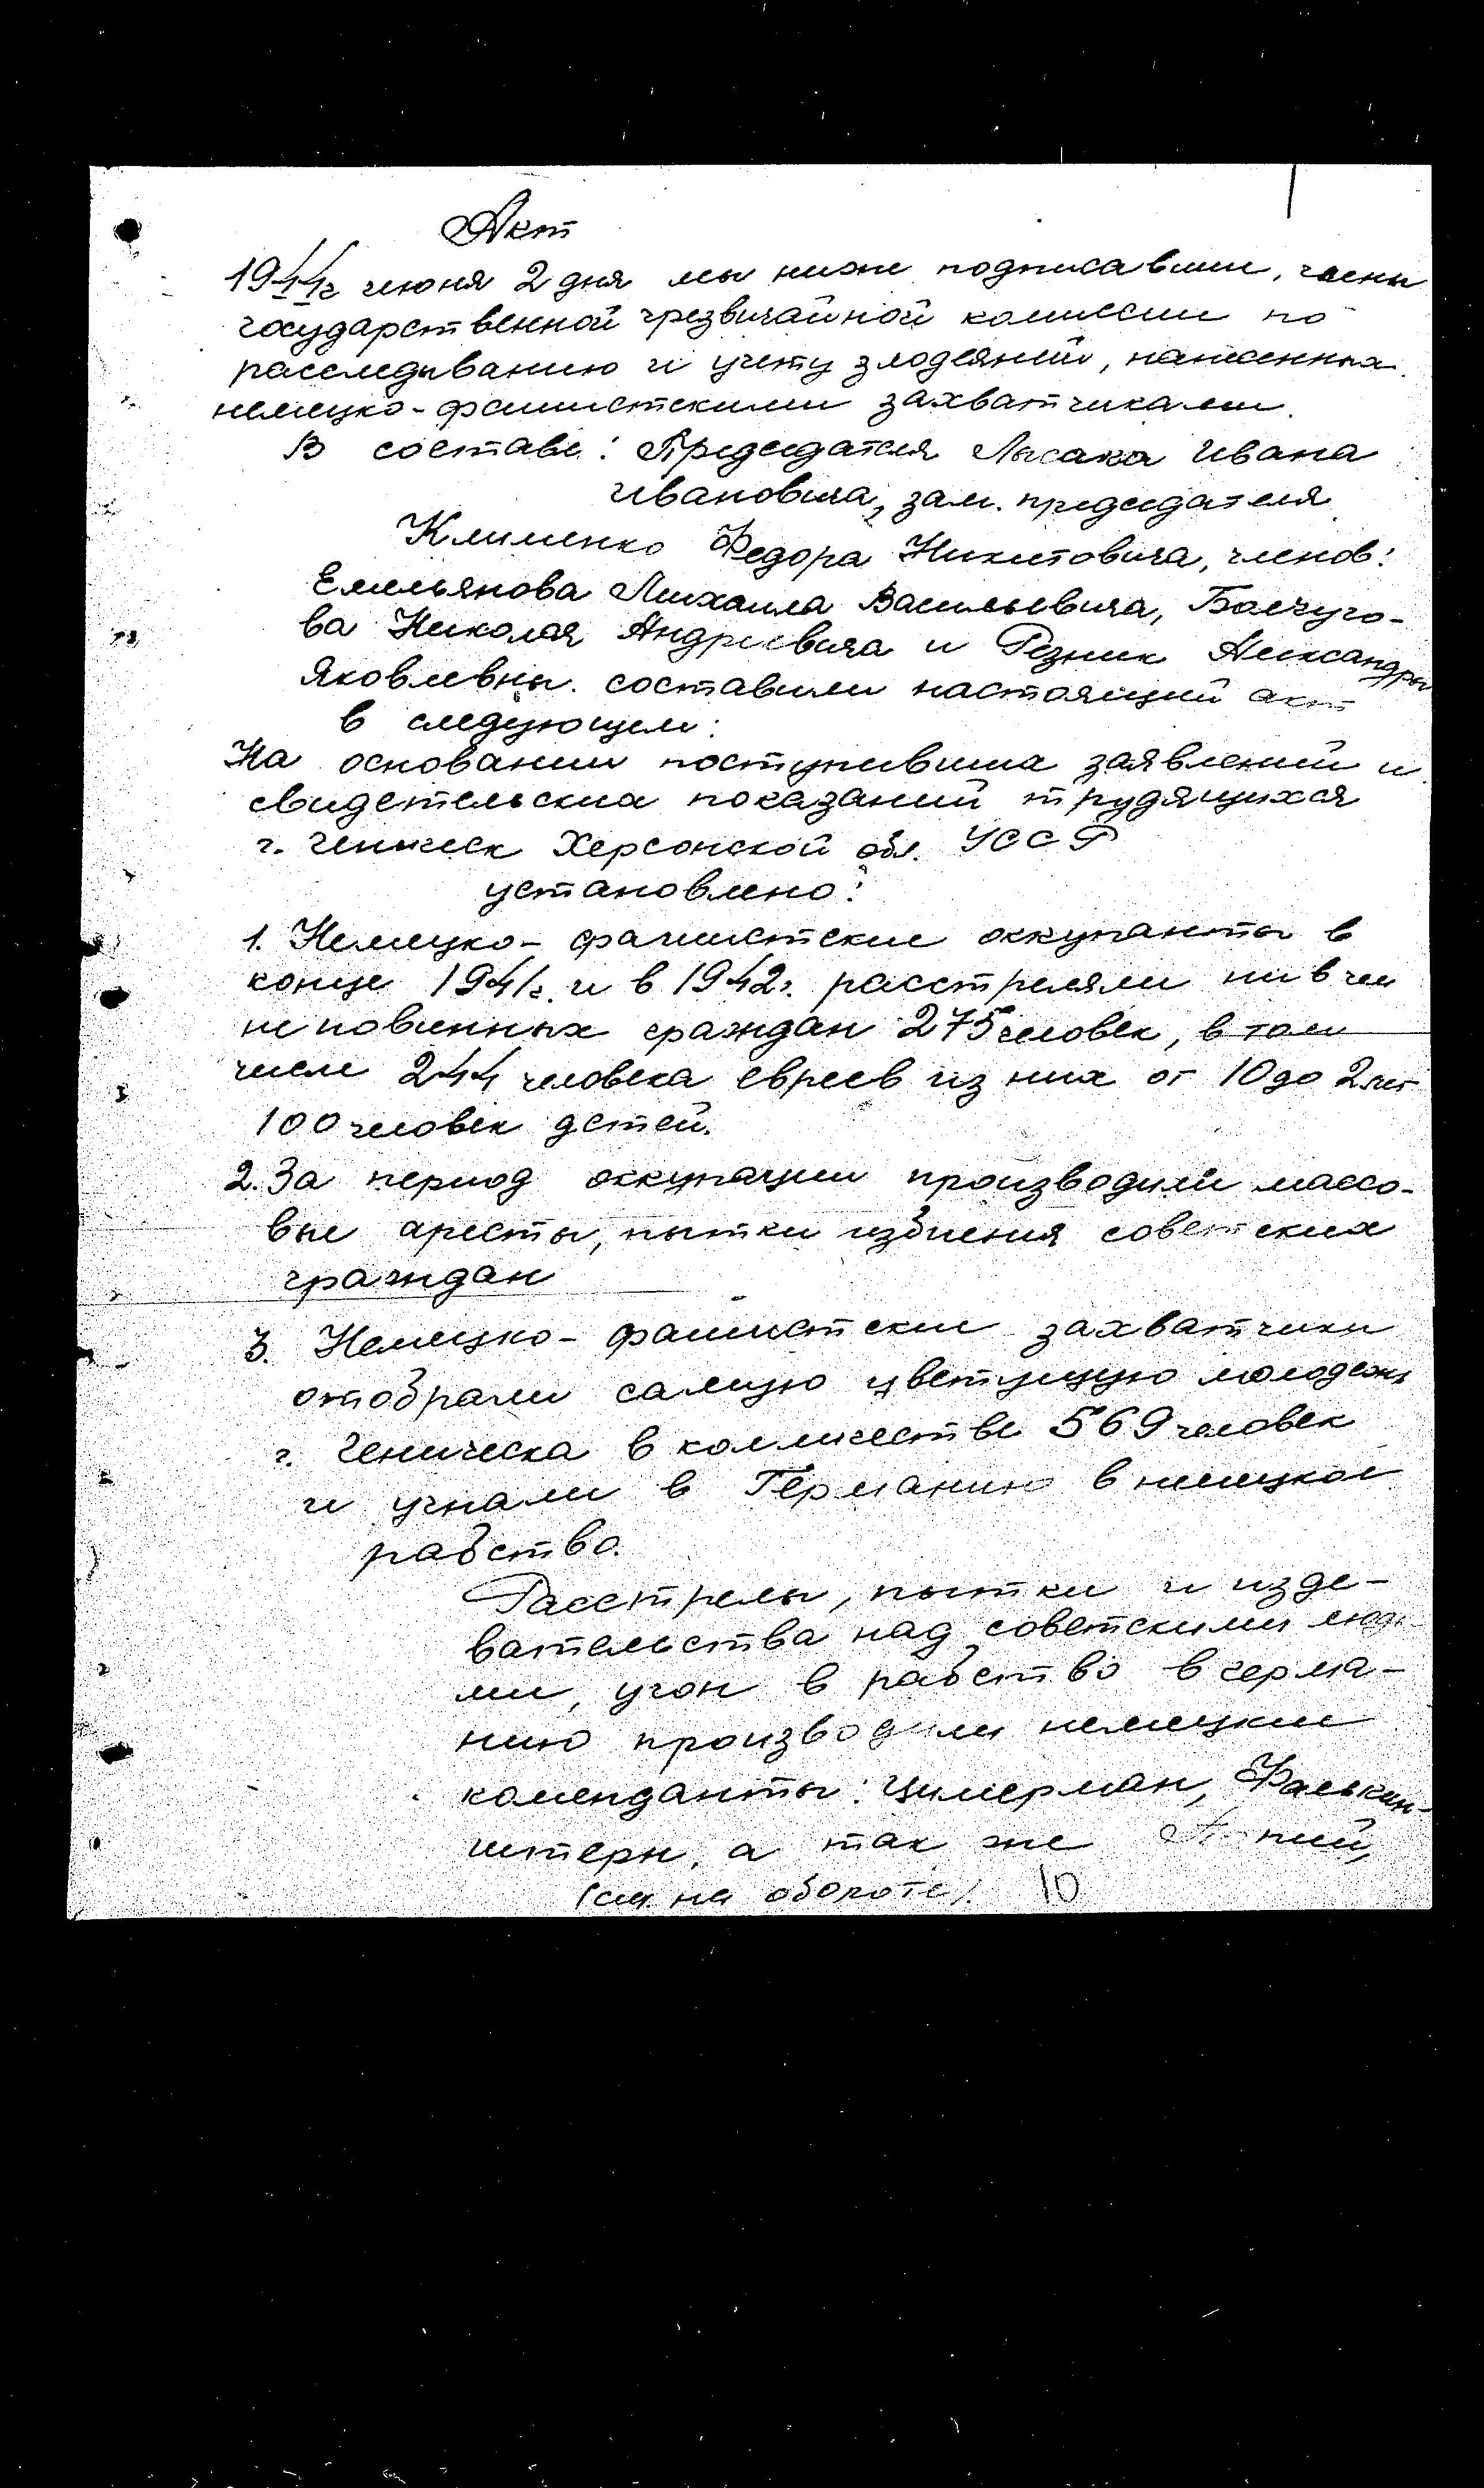 Акт
1944г июня 2 дня мы ниже подписавшии, члены
государственной чрезвичайной комиссии по
расследыванию и учету злодеяний, нанесенных
немецко-фашистскими захватчиками.
В составе: Председателя Лысака Ивана
Ивановича, зам. председателя
Клименко Федора Никитовича, членов:
Емельянова Михаила Васильевича, Балчуго-
ва Николая Андреевича и Резник Александры
Яковлевны. составили настоящий акт
в следующем:
На основании поступивших заявлений и
свидетельских показаний трудящихся
г. Геническ Херсонской обл. УССР
установлено:
1. Немецко-фашистские оккупанты в
конце 1941г. и в 1942г. расстреляли ни в чем
не повинных граждан 275 человек, в том
числе 244 человека евреев из них от 10 до 2 лет
100 человек детей.
2. За период оккупации производили массо-
вые аресты, пытки избиения советских
граждан
3. Немецко-фашистские захватчики
отобрали самую цветущую молодежь
г. Геническа в колличестве 569 человек
и угнали в Германию в немецкое
рабство.
Расстрелы, пытки и изде-
вательства над советскими людь
ми, угон в рабство в герма-
нию производили немецкие
коменданты: Цимерман, Фалькен-
штерн, а так же
(см. на обороте). 10